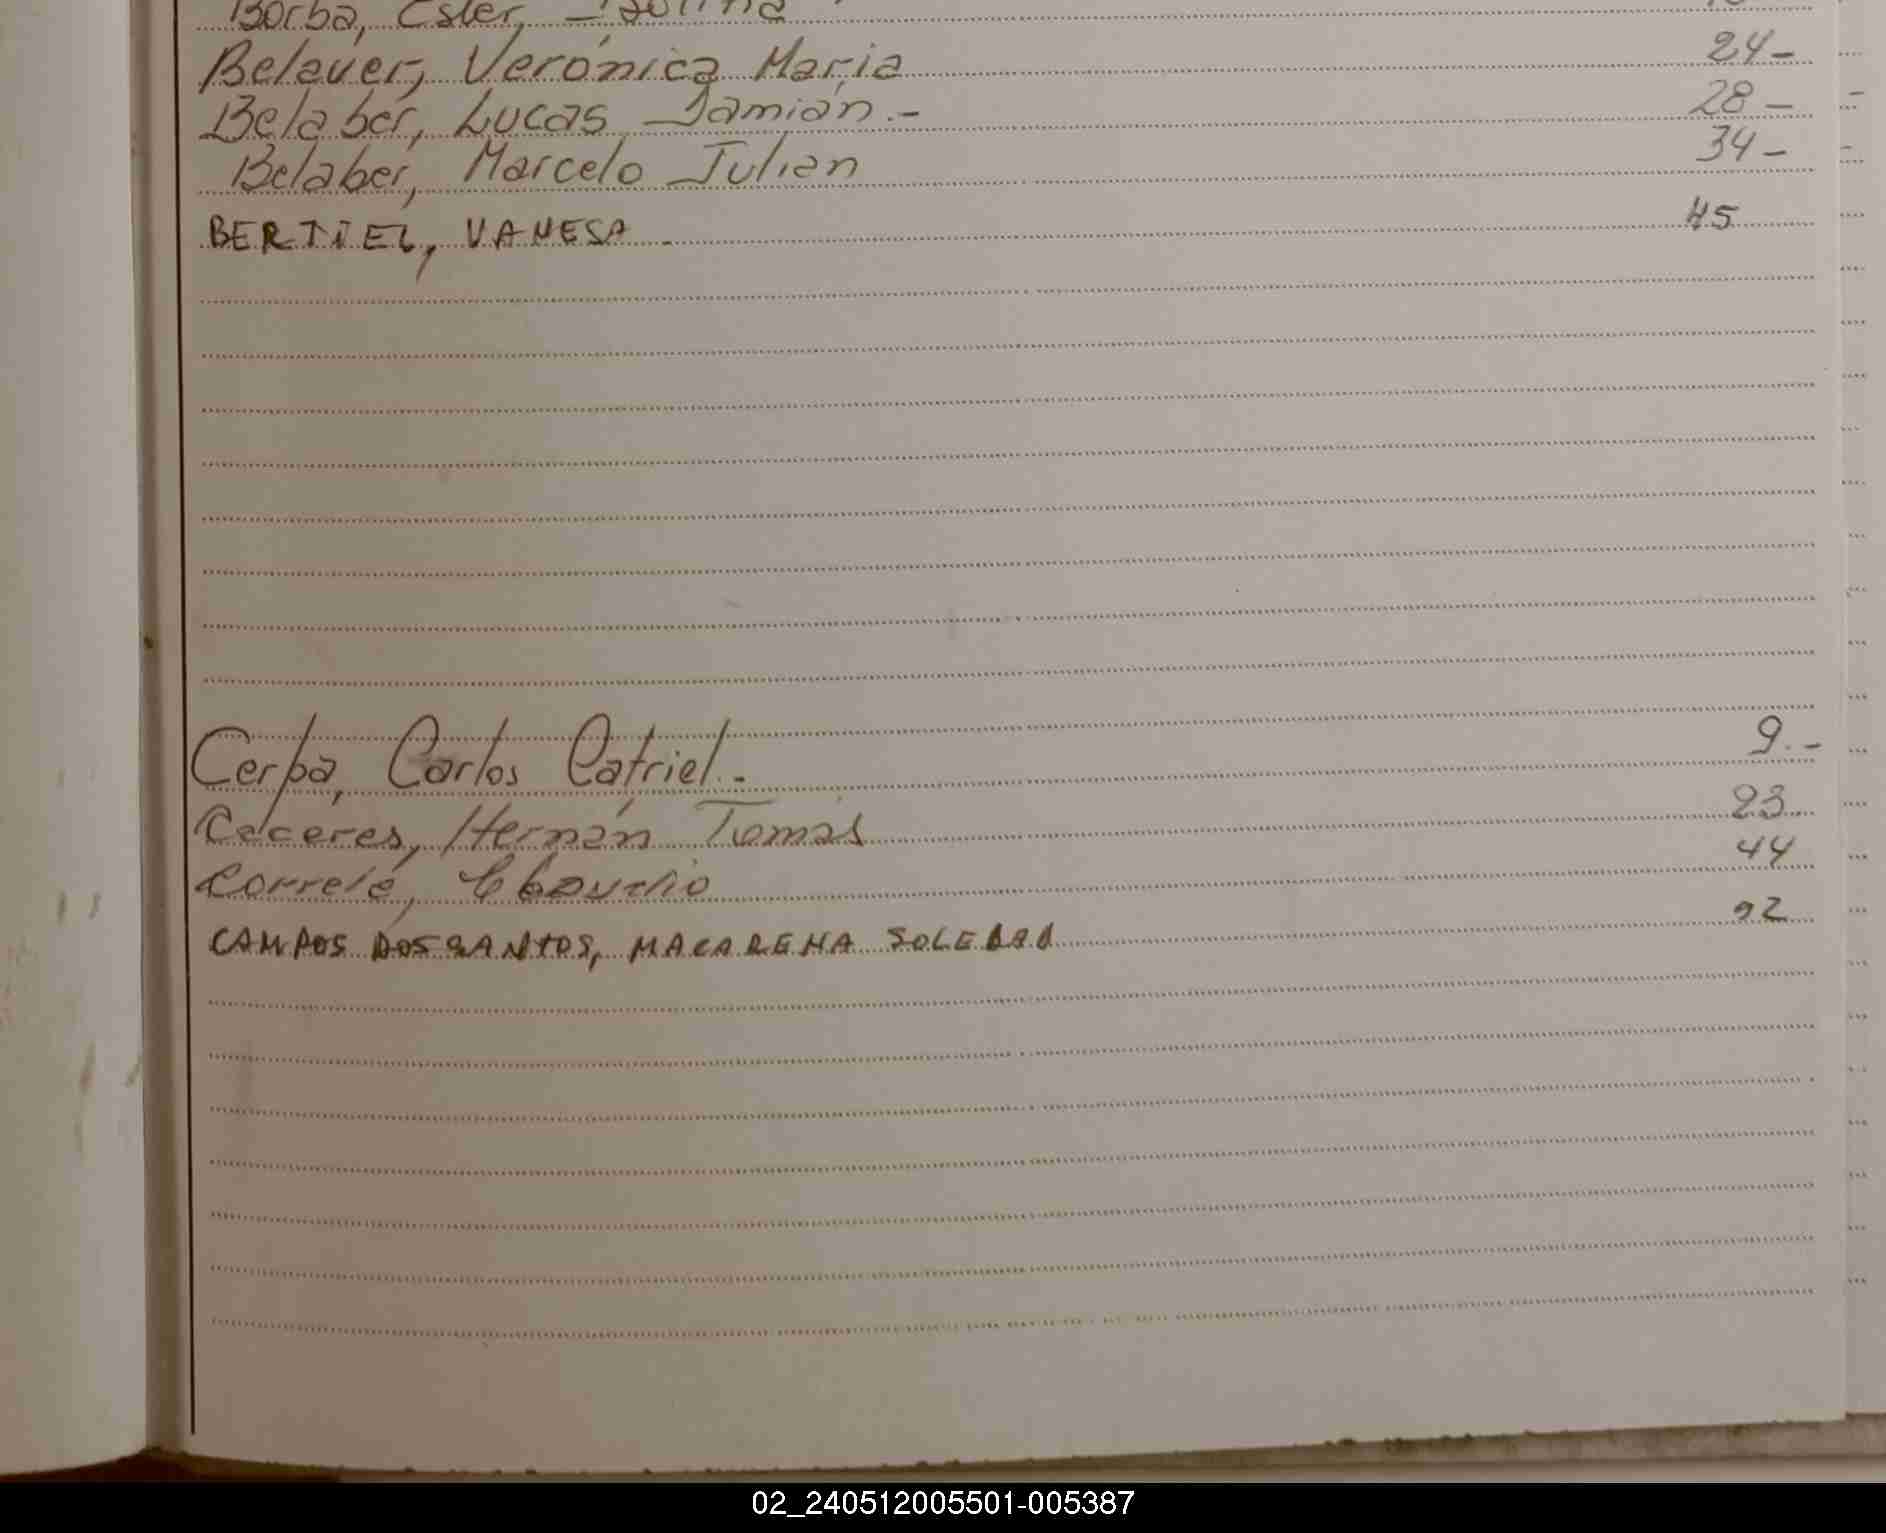 Borba, Ester
Belaver, Verónica Maria 24-
Belaber, Lucas Damián.- 28-
Belaber, Marcelo Julian 34-
BERTIEL, VANESA. 45
Cerpa, Carlos Catriel.- 9.-
Caceres, Hernán Tomás 23.
Correlé, 44
CAMPOS DOS SANTOS, MACARENA SOLEDAD
02_240512005501-005387